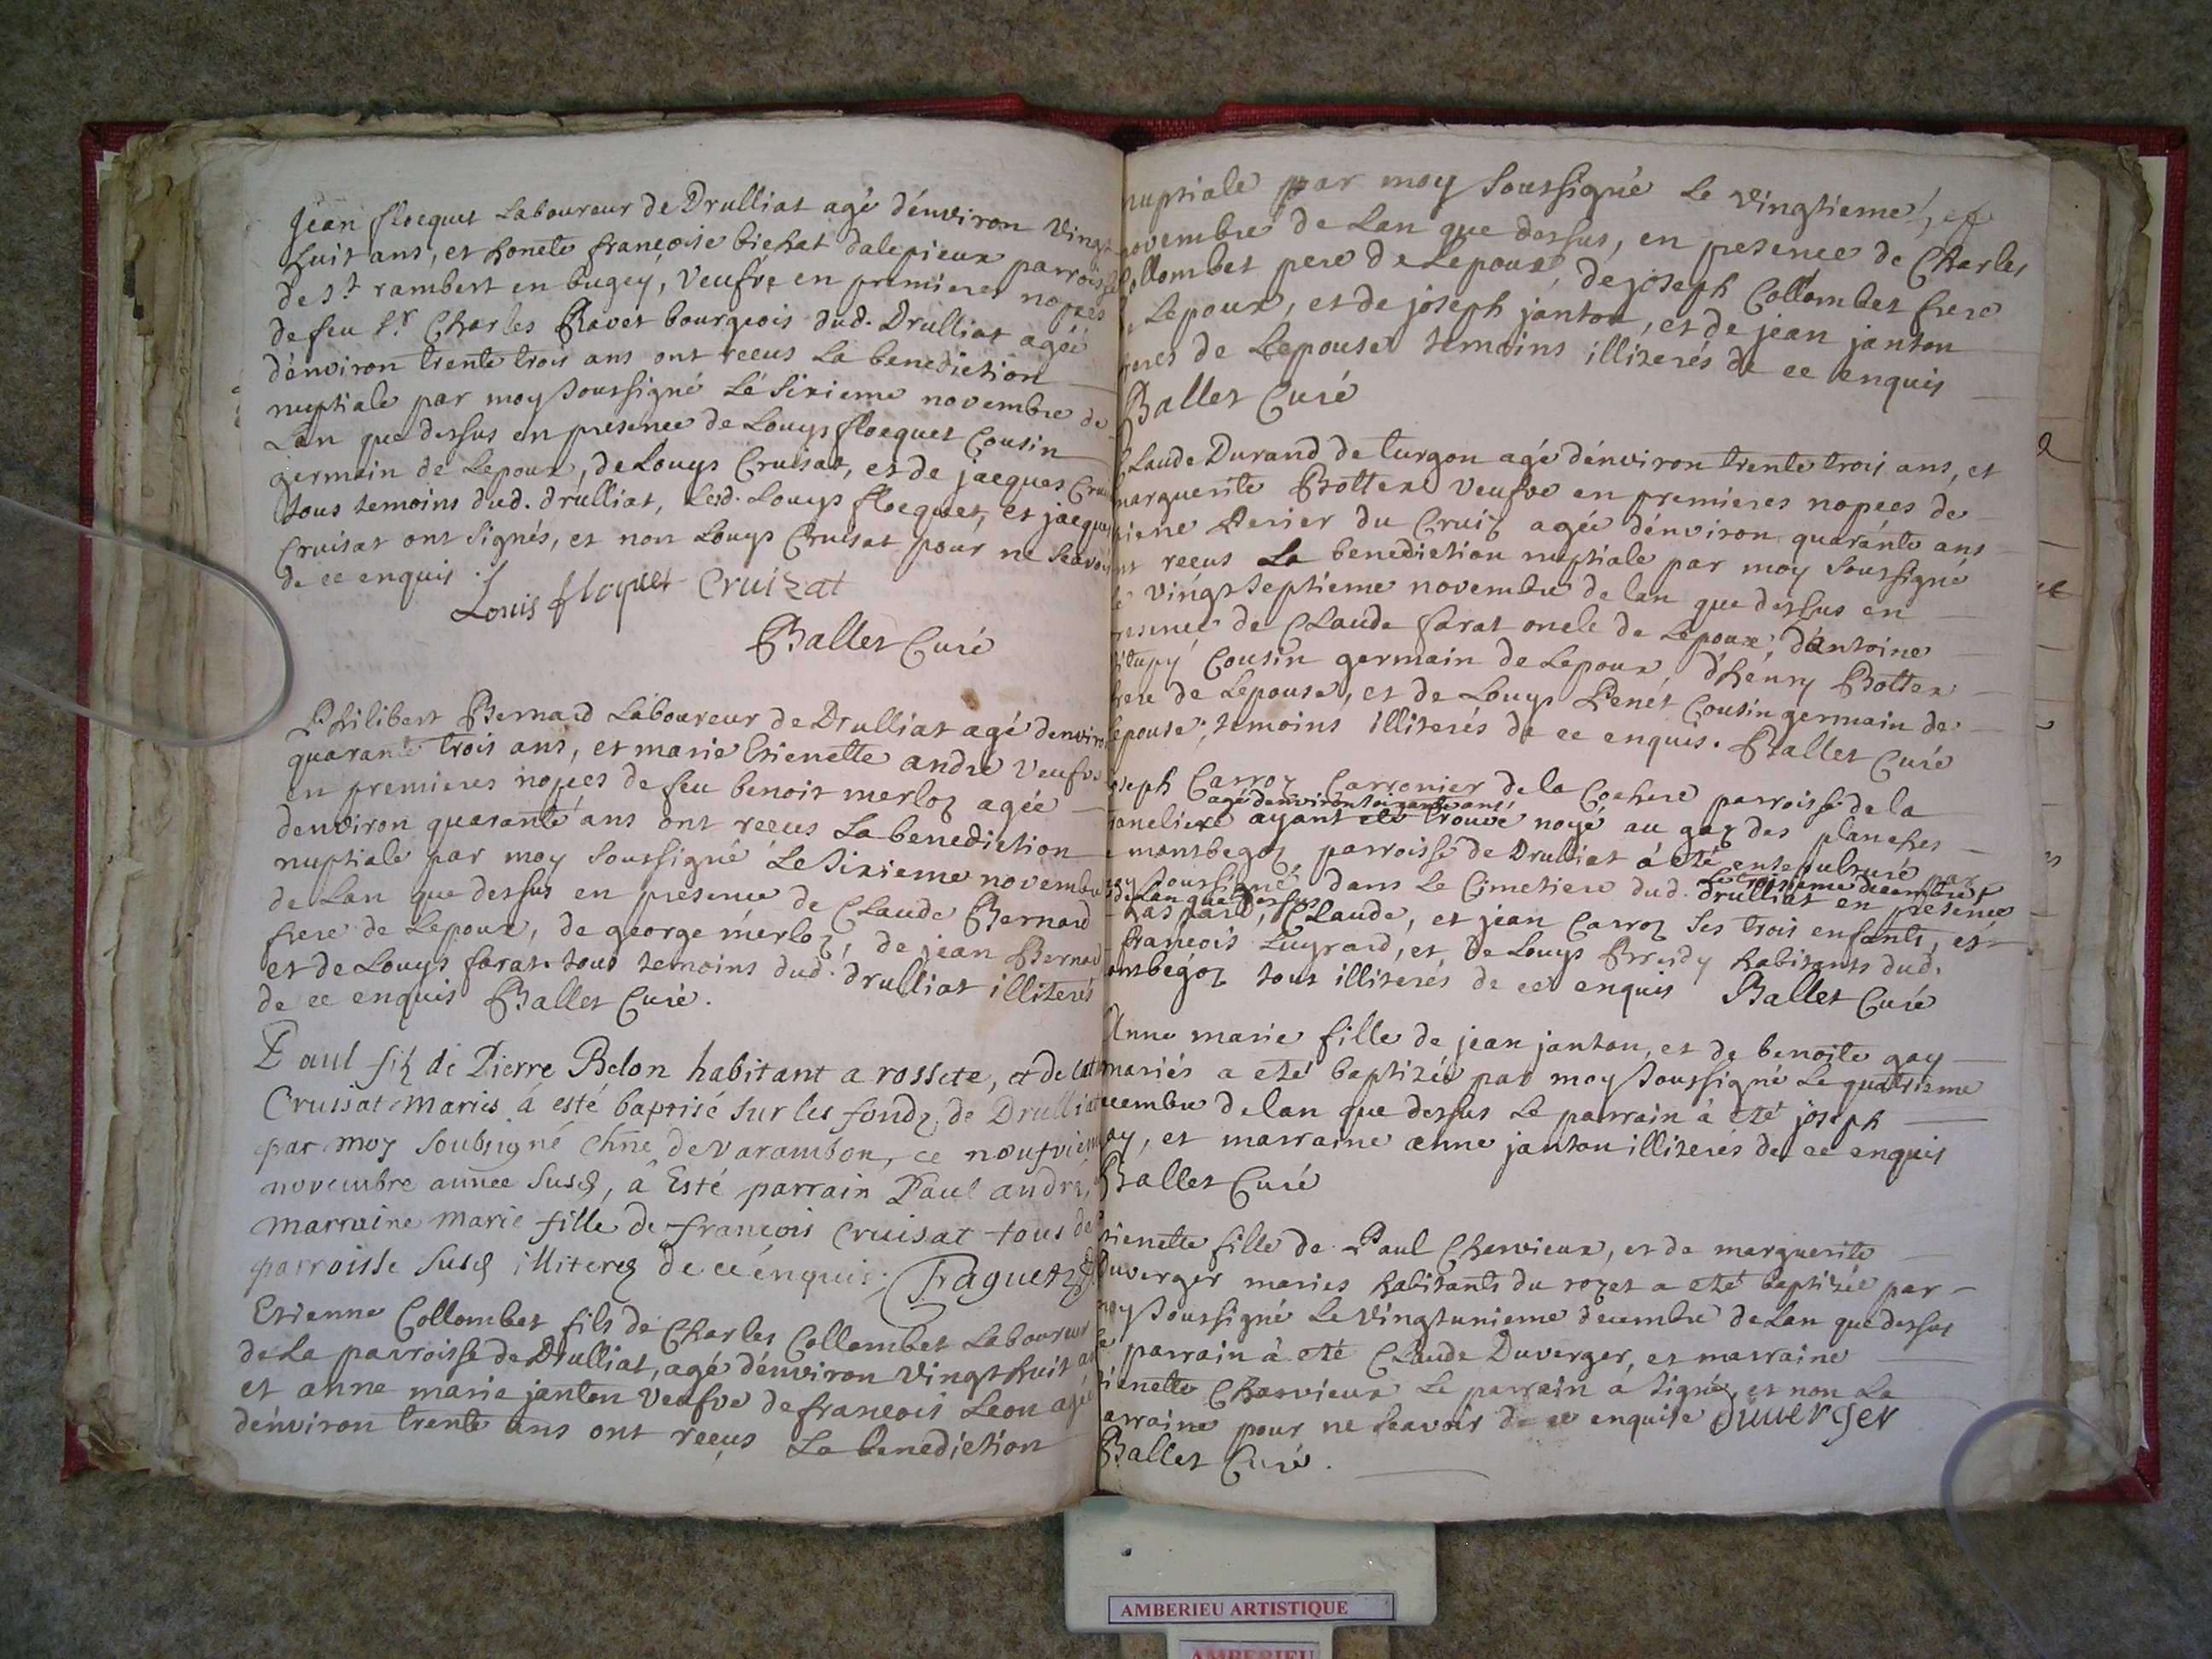 Jean flocquet Laboureur de Drulliat agé d'énviron Vingt
huit ans, et honete françoise bichat dalepieux parroisse
de St rambert en bugey, Veufve en premieres nopces
de feu Sr Charles Ravet bourgeois dud. Drulliat agée
d'énviron trente trois ans ont reçus La benediction
nuptiale par moy soussigné Le Sixieme novembre de
Lan que dessus en presence de Louys flocquet Cousin
germain de Lepoux, de Louys Cruisat, et de jacques
tous temoins dud. drulliat, Led. Louys flocquet, et jacques
Cruisat ont signés, et non Louys Cruisat pour ne scavoir
de ce enquis.
Louis floquet Cruizat
Ballet Curé
Philibert Bernard Laboureur de Drulliat agé denviron
quarante trois ans, et marie Etienette andré Veufve
en premieres nopces de feu benoit merloz agée
denviron quarante ans ont reçus La benediction
nuptiale par moy soussigné Le Sixieme novembre
de Lan que dessus en presence de Claude Bernard
frere de Lepoux, de george merloz, de jean Bernard
et de Louys farat. tous temoins dud. drulliat illiterés
de ce enquis Ballet Curé.
Paul filz de Pierre Belon habitant a rossete, et de
Cruisat mariés á esté baptisé sur les fondz de Drulliat
par moy soubsigné Chne de varambon, ce noufviem
novembre année susd, â Esté parrain Paul andre,
marraine Marie fille de francois Cruisat tous de
parroisse susd illiterez de ce énquis. Fraguet
Etienne Collombet fils de Charles Collombet Laboureur
de La parroisse de Drulliat, agé d'énviron Vingt huit
et anne marie janton Veufve de francois Leon agée
d'énviron trente ans ont reçus La benediction
nuptiale par moy soussigné Le Vingtieme,
novembre de Lan que dessus, en presence de Charles
Collombet pere de Lepoux, de joseph Collombet frere
Lepoux, et de joseph janton, et de jean janton
freres de Lepouse temoins illiterés de ce enquis
Ballet Curé
Claude Durand de turgon agé d'énviron trente trois ans, et
marguerite Bottex Veufve en premieres nopces de
Perier du Cruiz agée d'énviron quarante ans
ont reçus La benediction nuptiale par moy soussigné
le vingt septieme novembre de lan que dessus en
presence de Claude farat oncle de Lepoux, d'antoine
Cousin germain de Lepoux, d'hénry Bottex
frere de Lepouse, et de Louys Penet Cousin germain de
Lepouse, temoins illiterés de ce enquis. Ballet Curé
joseph Carroz Carronier de la Cochere parroisse de la
agé denviron soixante ans
ranceliere ayant eté trouvé noyé au gaz des planches
montbegoz, parroisse de Drulliat á eté ensepulturé par
moy soussigné, dans Le Cimetiere dud. drulliat en presence
Le troisieme decembre
de Lan que dessus
Gaspard, Claude, et jean Carroz ses trois enfants, et
françois Luyrard, et de Louys Bredy habitants dud.
montbégoz tous illiterés de ce enquis Ballet Curé
Anne marie fille de jean janton, et de benoite gay
mariés a eté baptizée par moy soussigné Le quatrieme
decembre de lan que dessus Le parrain á eté joseph
gay, et marraine anne janton illiterés de ce enquis
Ballet Curé
Etienette fille de Paul Charvieux, et de marguerite
Duverger mariés habitants du rozet a eté baptizée par
moy soussigné Le Vingtunieme decembre de Lan que dessus
Le parrain á eté Claude Duverger, et marraine
Etienette Charvieux Le parrain á signé, et non La
marraine pour ne scavoir de ce enquise duverger
Ballet Curé.
AMBERIEU ARTISTIQUE
AMBERIEU